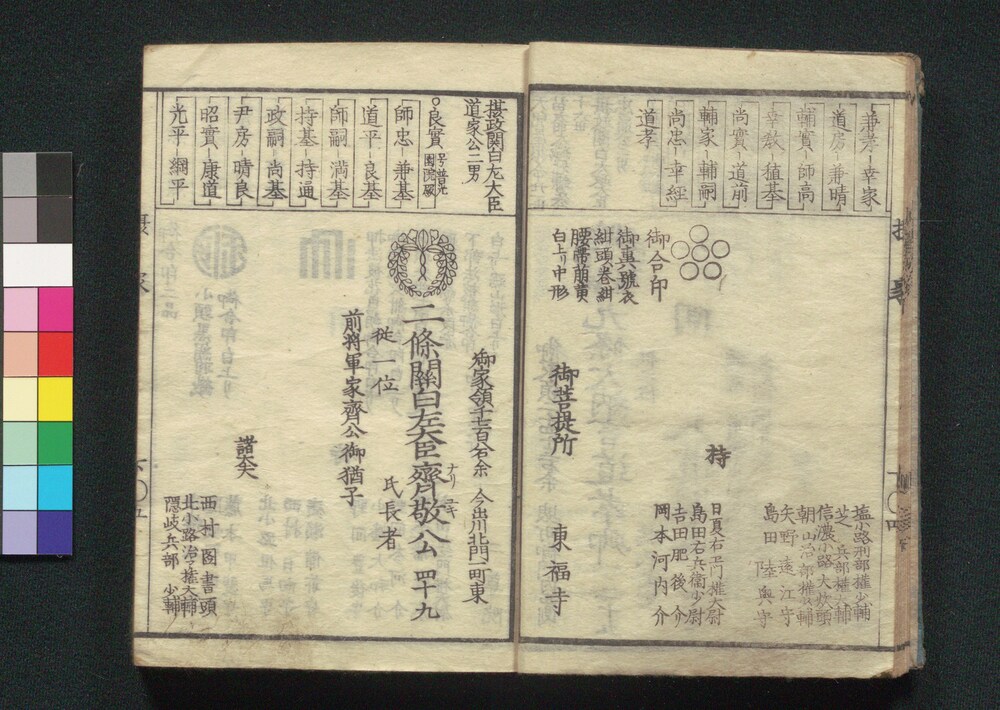 兼孝 幸家
道房 兼晴
輔實 師高
幸教 稙基
尚實 道前
輔家 輔嗣
尚忠 幸經
道孝
御合印
腰帯萠黄
白上リ中形
御菩提所
東福寺
持
塩小路刑部権少輔
芝 兵部権大輔
信濃小路大炊頭
朝山治部権大輔
矢野遠江守
島田陸奥守
日夏右衛門権大尉
島田右兵衛少尉
吉田肥後介
岡本河内介
摂政関白左大臣
道家公二男
○良實 号普光園院殿
師忠 兼基
道平 良基
師嗣 満基
持基 持通
政嗣 尚基
尹房 晴良
昭實 康道
光平 綱平
御家領千七百余 今出川北門一町東
二條關白左大臣齊敬公 四十九
ナリユキ
氏長者
従一位
前将軍家齊公御猶子
諸大夫
西村圖書頭
北小路治部権大輔
隠岐兵部少輔